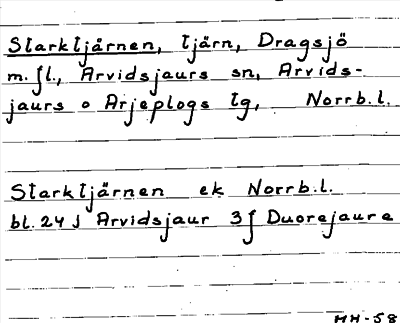 Starktjärnen, tjärn, Dragsjö
m.fl., Arvidsjaurs sn, Arvids-
jaurs o Arjeplogs tg, Norrb.l.
Starktjärnen ek Norrb.l.
bl. 24 J Arvidsjaur 3f Duorejaure
MH-58